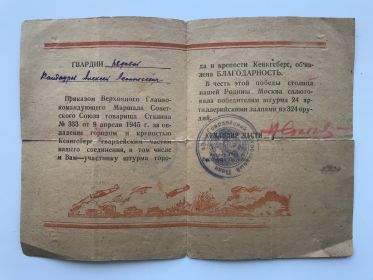 ГВАРДИИ рядовому
Алексею
Приказом Верховного Главно-
командующего Маршала Совет-
ского Союза товарища Сталина
№ 333 от 9 апреля 1945 г. за ов-
ладение городом и крепостью
Кенигсберг гвардейским частям
нашего соединения, в том числе
и Вам—участнику штурма горо-
да и крепости Кенигсберг, об'яв-
лена БЛАГОДАРНОСТЬ.
В честь этой победы столица
нашей Родины Москва салюто-
вала победителям штурма 24 ар-
тиллерийскими залпами из 324 ору-
дий.
КОМАНДИР ЧАСТИ